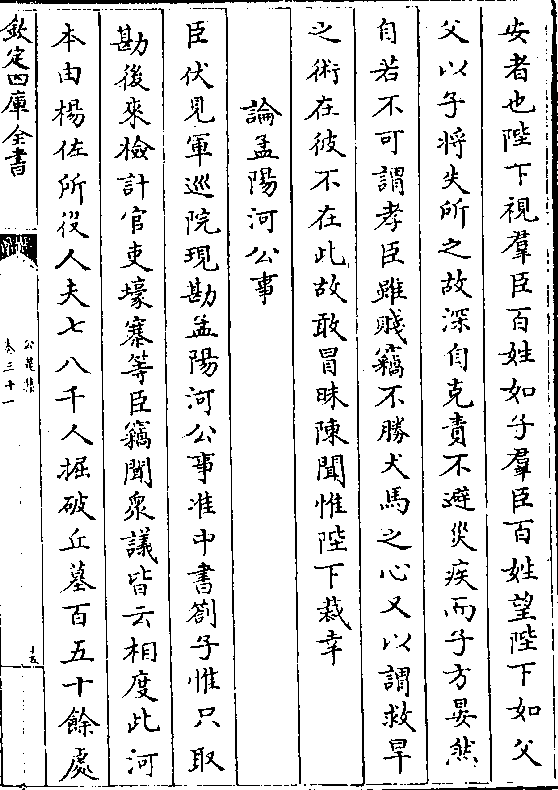 安者也陛下視羣臣百姓如子羣臣百姓望陛下如父
父以子將失所之故深自克責不避災疾而子方晏然
自若不可謂孝臣雖賤竊不勝犬馬之心又以謂救旱
之術在彼不在此故敢冒昧陳聞惟陛下裁幸
論孟陽河公事
臣伏見軍巡院現勘孟陽河公事准中書劄子惟只取
勘後來檢計官吏壕寨等臣竊聞衆議皆云相度此河
本由楊佐所役人夫七八千人掘破丘墓百五十餘處
欽定四庫全書
公是集
卷三十一
十五